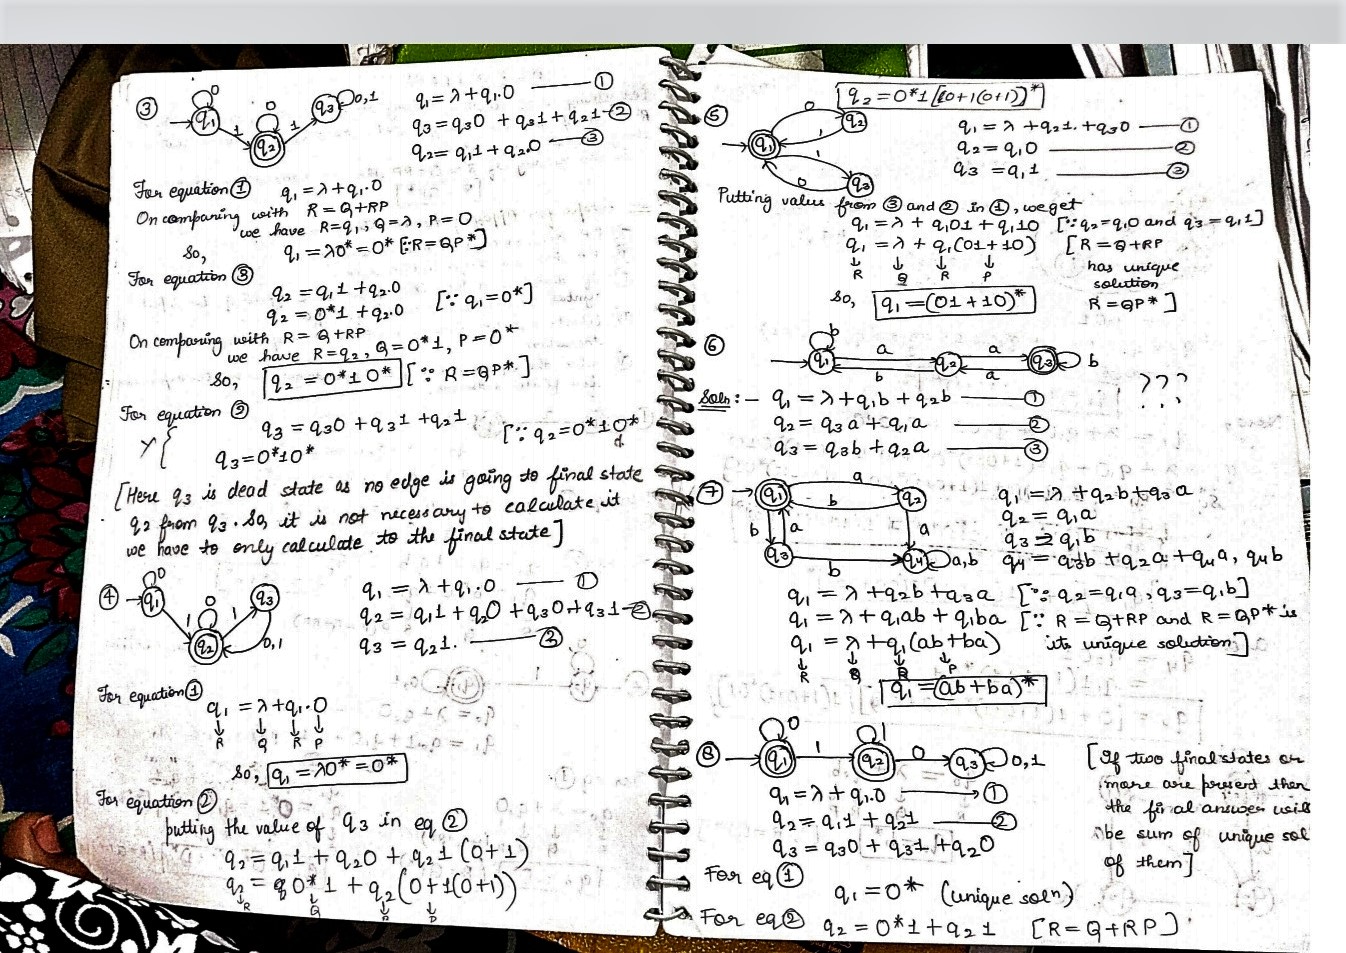 ③
0
0
q₁
1
q₂
1
q₃
0,1
q₁ = λ + q₁.0 ——— ①
q₃ = q₃0 + q₃1 + q₂1 — ②
q₂ = q₁1 + q₂0 —— ③
For equation ① q₁ = λ + q₁.0
On comparing with R = Q + RP
we have R = q₁, Q = λ, P = 0
So, q₁ = λ0* = 0* [∵ R = QP*]
For equation ③
q₂ = q₁1 + q₂.0
q₂ = 0*1 + q₂.0 [∵ q₁ = 0*]
On comparing with R = Q + RP
we have R = q₂, Q = 0*1, P = 0*
So, q₂ = 0*10* [∵ R = QP*]
For equation ②
q₃ = q₃0 + q₃1 + q₂1
q₃ = 0*10* [∵ q₂ = 0*10*
[Here q₃ is dead state as no edge is going to final state
q₂ from q₃. So, it is not necessary to calculate it
we have to only calculate to the final state]
④
0
q₁
1
0
q₂
1
q₃
0,1
q₁ = λ + q₁.0 —— ①
q₂ = q₁1 + q₂0 + q₃0 + q₃1 — ②
q₃ = q₂1. ——— ③
For equation ①
q₁ = λ + q₁.0
R Q R P
So, q₁ = λ0* = 0*
For equation ②
putting the value of q₃ in eq ②
q₂ = q₁1 + q₂0 + q₂1(0+1)
q₂ = 0*1 + q₂(0+1(0+1))
R Q R P
q₂ = 0*1[(0+1(0+1))*
⑤
q₁
0
q₂
1
1
0
q₃
q₁ = λ + q₂1. + q₃0 —— ①
q₂ = q₁0 ——— ②
q₃ = q₁1 ——— ③
Putting value from ③ and ② in ①, we get
q₁ = λ + q₁01 + q₁10 [∵ q₂ = q₁0 and q₃ = q₁1]
q₁ = λ + q₁(01+10) [R = Q + RP
R Q R P
has unique
solution
So, q₁ = (01+10)* R = QP*]
⑥
b
q₁
a
b
q₂
a
a
q₃
b
???
Soln:- q₁ = λ + q₁b + q₂b —— ①
q₂ = q₃a + q₁a —— ②
q₃ = q₃b + q₂a —— ③
⑦
q₁
a
b
q₂
b
a
a
q₃
b
q₄
a,b
q₁ = λ + q₂b + q₃a
q₂ = q₁a
q₃ = q₁b
q₄ = q₃b + q₂a + q₄a, q₄b
q₁ = λ + q₂b + q₃a [∵ q₂ = q₁a, q₃ = q₁b]
q₁ = λ + q₁ab + q₁ba [∵ R = Q + RP and R = QP* is
q₁ = λ + q₁(ab+ba) its unique solution]
R Q R P
q₁ = (ab+ba)*
⑧
0
q₁
1
1
q₂
0
q₃
0,1
q₁ = λ + q₁.0 ——— ①
q₂ = q₁1 + q₂1 ——— ②
q₃ = q₃0 + q₃1 + q₂0
[If two final states or
more are present then
the final answer will
be sum of unique sol
of them]
For eq ①
q₁ = 0* (unique solⁿ)
For eq ② q₂ = 0*1 + q₂1 [R = Q + RP]